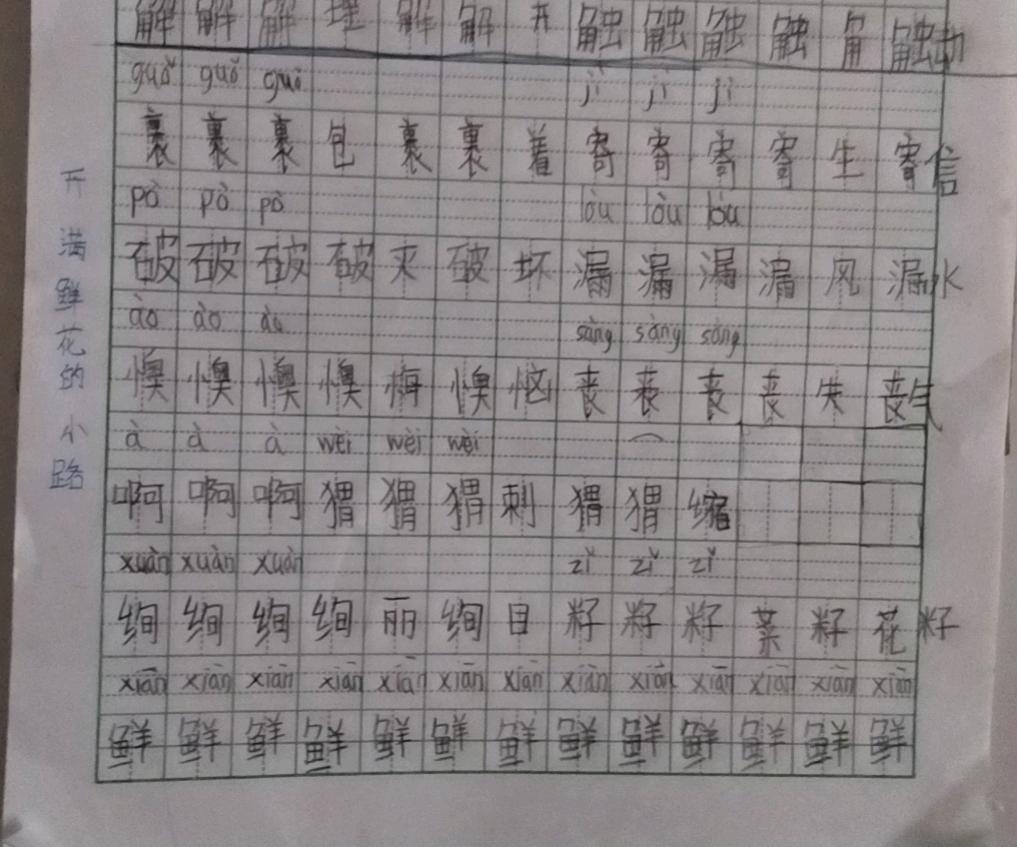 解解解理解解开触触触触角触动
guǒ guǒ guǒ jì jì jì
裹裹裹包裹裹着寄寄寄寄生寄信
pò pò pò lòu lòu lòu
破破破破灭破坏漏漏漏漏风漏水
ào ào ào sàng sàng sàng
懊懊懊懊悔懊恼丧丧丧丧失丧气
à à à wèi wèi wèi
啊啊啊猬猬猬刺猬猬缩
xuàn xuàn xuàn zǐ zǐ zǐ
绚绚绚绚丽绚目籽籽籽菜籽花籽
xiān xiān xiān xiān xiān xiān xiān xiān xiān xiān xiān xiān xiān
鲜鲜鲜鲜鲜鲜鲜鲜鲜鲜鲜鲜鲜
开满鲜花的小路